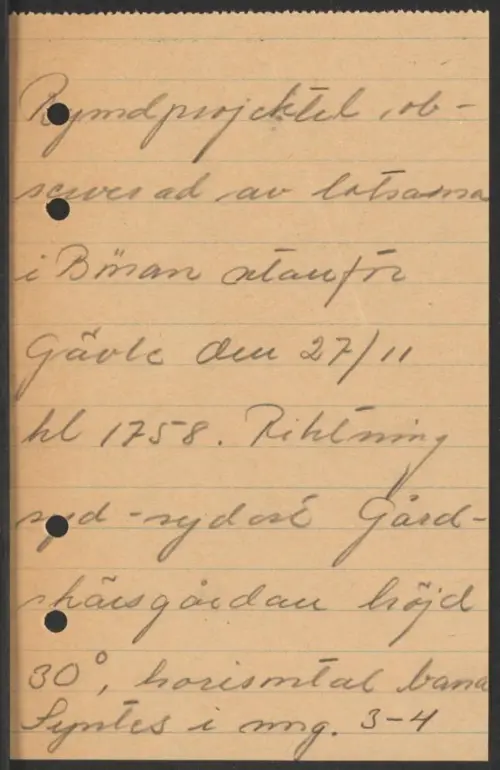 Rymdprojektil, ob-
serverad av lotsarna
i Bönan utanför
Gävle den 27/11
kl 1758. Riktning
syd-sydost Gård-
skärsgårdan höjd
30°, horisontal bana
Syntes i omg. 3-4